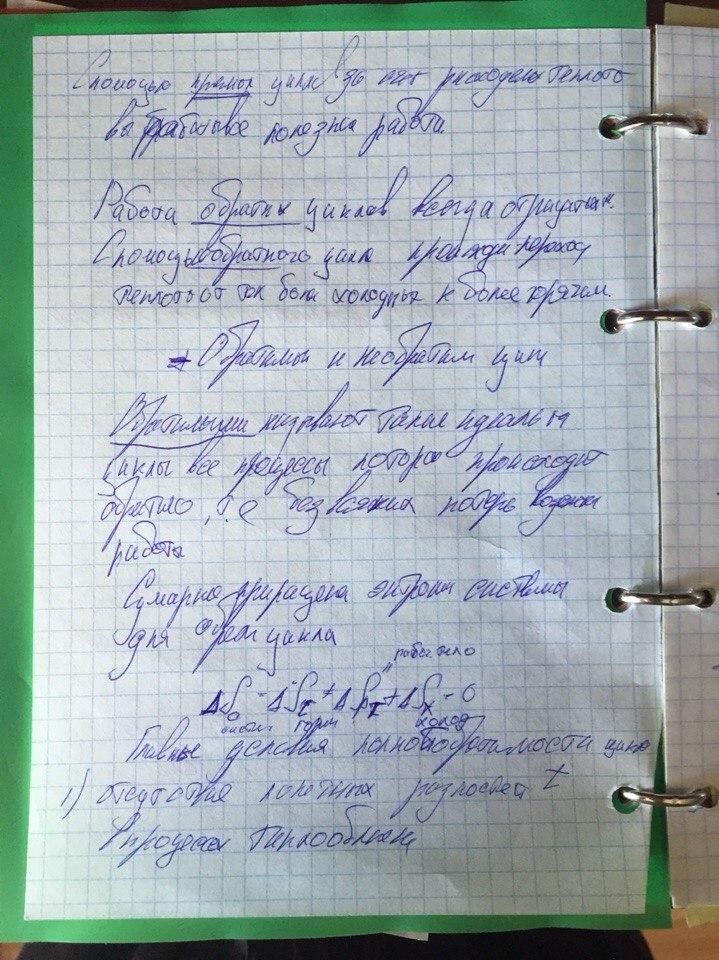 С помощью прямых циклов за счет расхода теплоты
вырабатывае полезная работа
Работа обратных циклов всегда отрицательн.
С помощью обратного цикла происходи переход
теплоты от тел более холодных к более горячем.
Обратимый и необратим цикл
Обратимыми называют такие идеальн
циклы все процесы которо происходит
обратимо, т.е без всяких потерь
работы
Сумарно приращена энтропи системы
для обрат цикла
рабоч тело
ΔS₀ = ΔSг + ΔSрт + ΔSх = 0
систем горяч холод
Главные условия полной обратимости цикла
1) отсутствия конечных разностей t
в процессах теплообмена